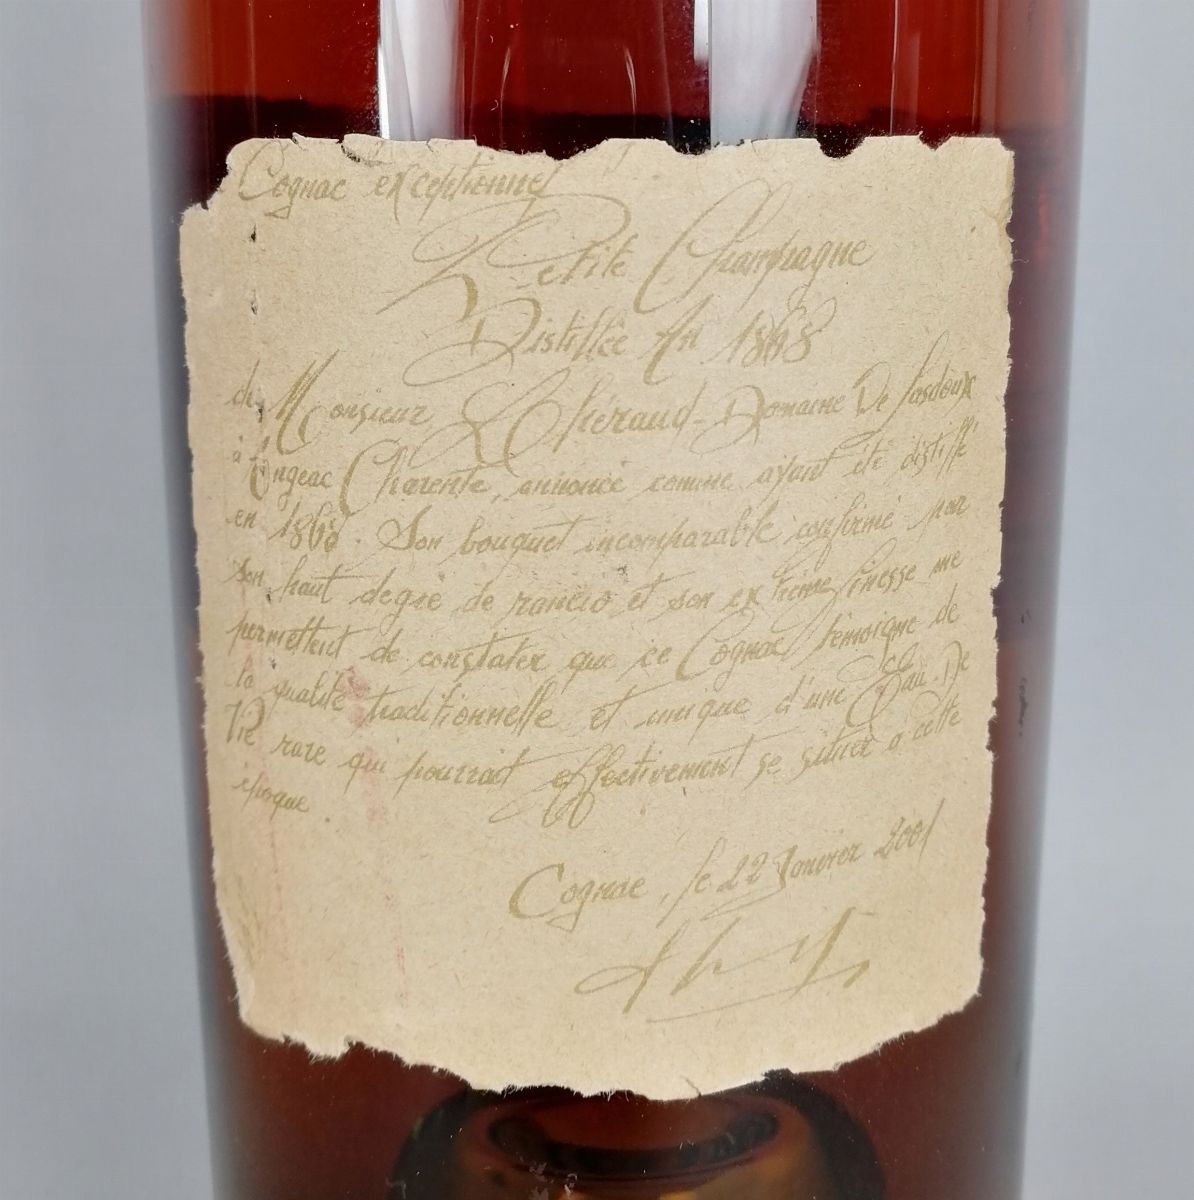 Cognac exceptionnel
Petite Champagne
Distillée en 1868
de Monsieur Lhéraud - Domaine De Lasdoux
à Angeac Charente, annoncé comme ayant été distillé
en 1868. Son bouquet incomparable confirmé par
son haut degré de rancio et son extrême finesse me
permettent de constater que ce Cognac témoigne de
la qualité traditionnelle et unique d'une Eau De
Vie rare qui pourrait effectivement se situer à cette
époque.
Cognac, le 22 Janvier 2001